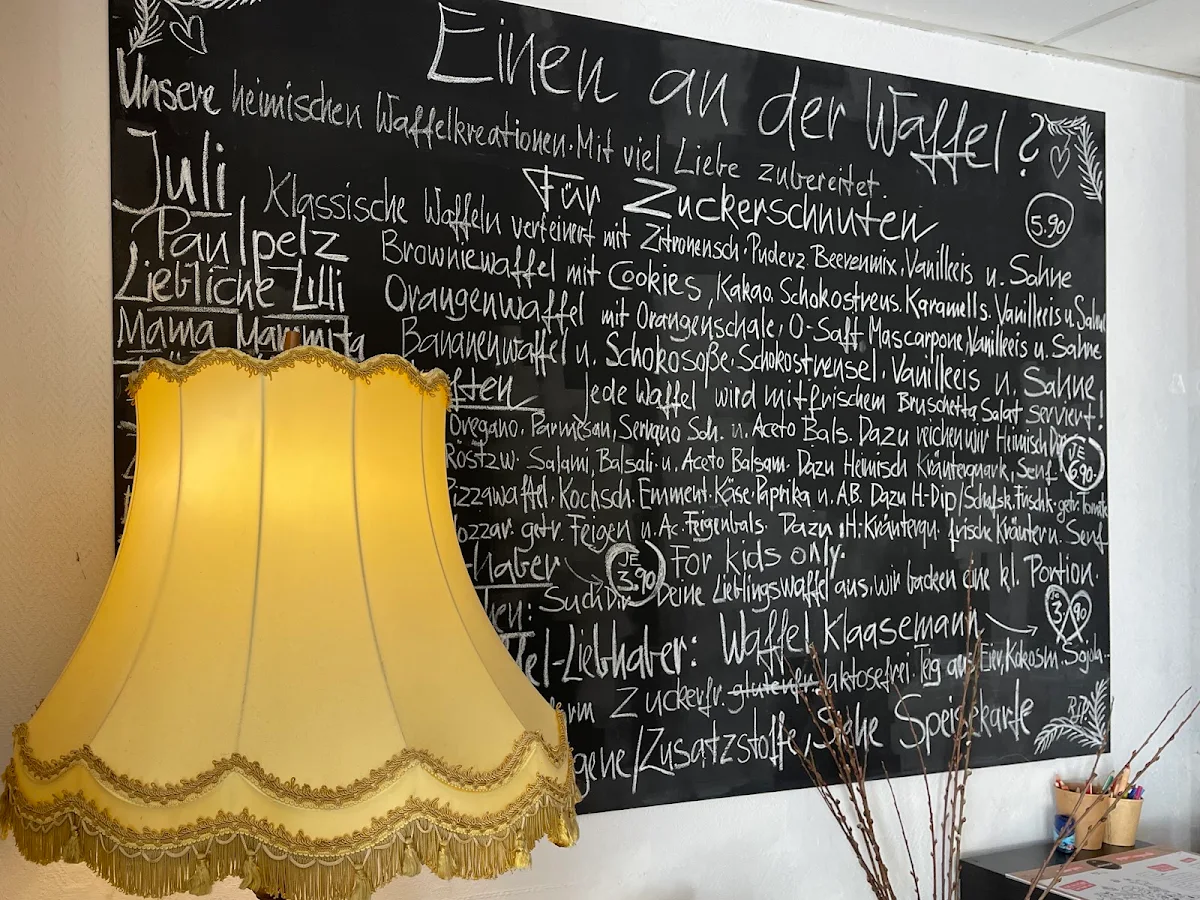 Einen an der Waffel?
Unsere heimischen Waffelkreationen. Mit viel Liebe zubereitet.
Für Zuckerschnuten 5.90
Juli Klassische Waffeln verfeinert mit Zitronensch. Puderz. Beerenmix, Vanilleeis u. Sahne
Paulpelz Browniewaffel mit Cookies, Kakao, Schokostreus. Karamells. Vanilleeis u. Sahne
Liebliche Lilli Orangenwaffel mit Orangenschale, O-Saft Mascarpone, Vanilleeis u. Sahne
Mama Mammita Bananenwaffel u. Schokosoße, Schokostreusel, Vanilleeis u. Sahne
ften jede Waffel wird mit frischem Bruschetta Salat serviert!
Oregano, Parmesan, Serrano Sch. u. Aceto Bals. Dazu reichen wir Heimisch Dip
JE 6.90
Röstzw. Salami, Balsali u. Aceto Balsam. Dazu Heimisch Kräuterquark, Senf
izzawaffel. Kochsch. Emment. Käse, Paprika u. AB. Dazu H-Dip/Schafsk. Frischk. getr. Tomate
ozzar. getr. Feigen u. Ac. Feigenbals. Dazu H. Kräuterqu. frische Kräuter u. Senf
haber JE 3.90 For kids only.
en: Such Dir Deine Lieblingswaffel aus, wir backen eine kl. Portion.
fel-Liebhaber: Waffel Klaasemann Je 3,90
Zuckerfr. glutenfr. laktosefrei Teig aus Eier, Kokosm. Sojola..
gene/Zusatzstoffe, siehe Speisekarte